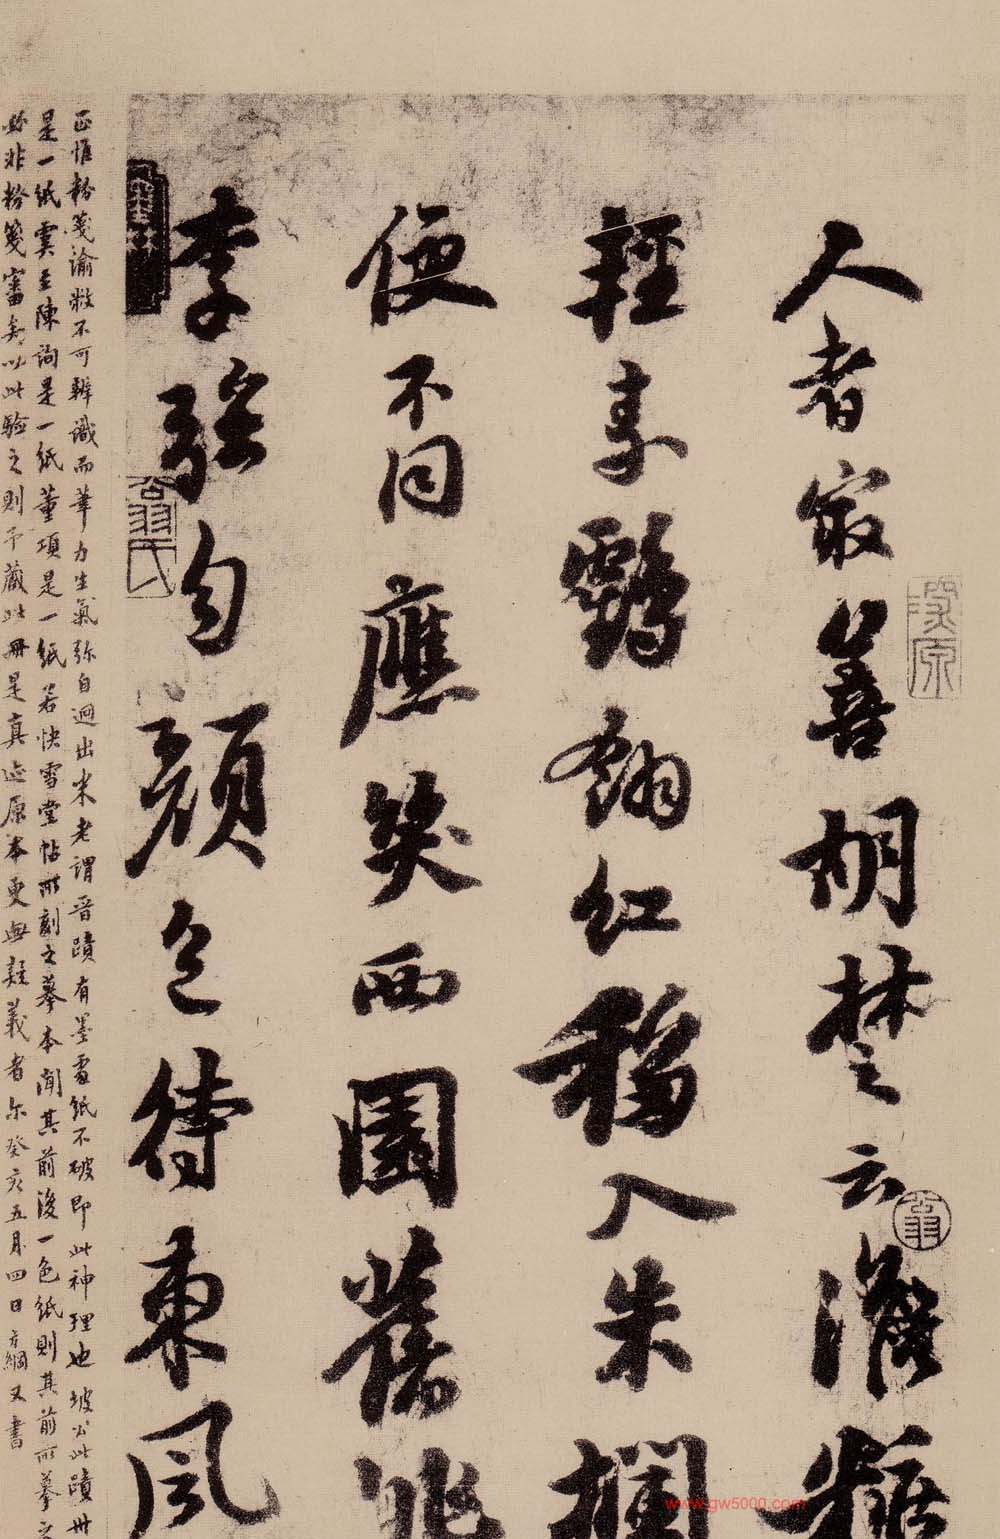 人者冣善胡楚云澹粧
輕素鶴翎紅移入朱欄
便不同應笑西園舊桃
李強勻顏色待東風
正惟粉箋渝敝不可辨識而筆力生氣弥自迥出米老謂晉蹟有墨處紙不破即此神理也坡公此蹟卅
是一紙虞至陳詢是一紙董項是一紙若快雪堂帖所刻之摹本聞其前後一色紙則其前所摹之
必非粉箋審矣以此驗之則予藏此冊是真迹原本更無疑義者尔癸亥五月四日方綱又書
翁
www.gw5000.com